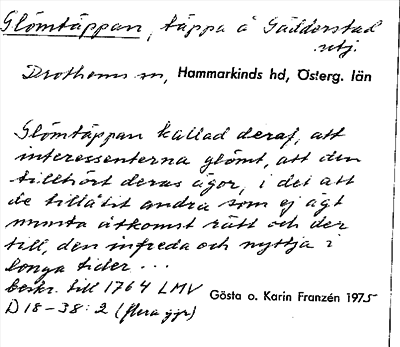 Glömtäppan, täppa å Gädderstad
utj.
Drothems sn, Hammarkinds hd, Österg. län
Glömtäppan kallad deraf, att
interessenterna glömt, att den
tillhört deras ägor, i det att
de tillåtit andra som ej ägt
minsta åtkomst rätt och der
till, den infreda och nyttja i
longa tider ...
beskr. till 1764 LMV
D 18-38:2 (flera ggr)
Gösta o. Karin Franzén 1975